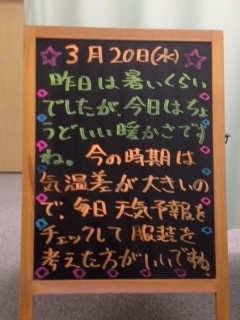 3月20日(水)
昨日は暑いくらい
でしたが、今日はちょ
うどいい暖かさです
ね。今の時期は
気温差が大きいの
で、毎日天気予報を
チェックして服装を
考えた方がいいですね